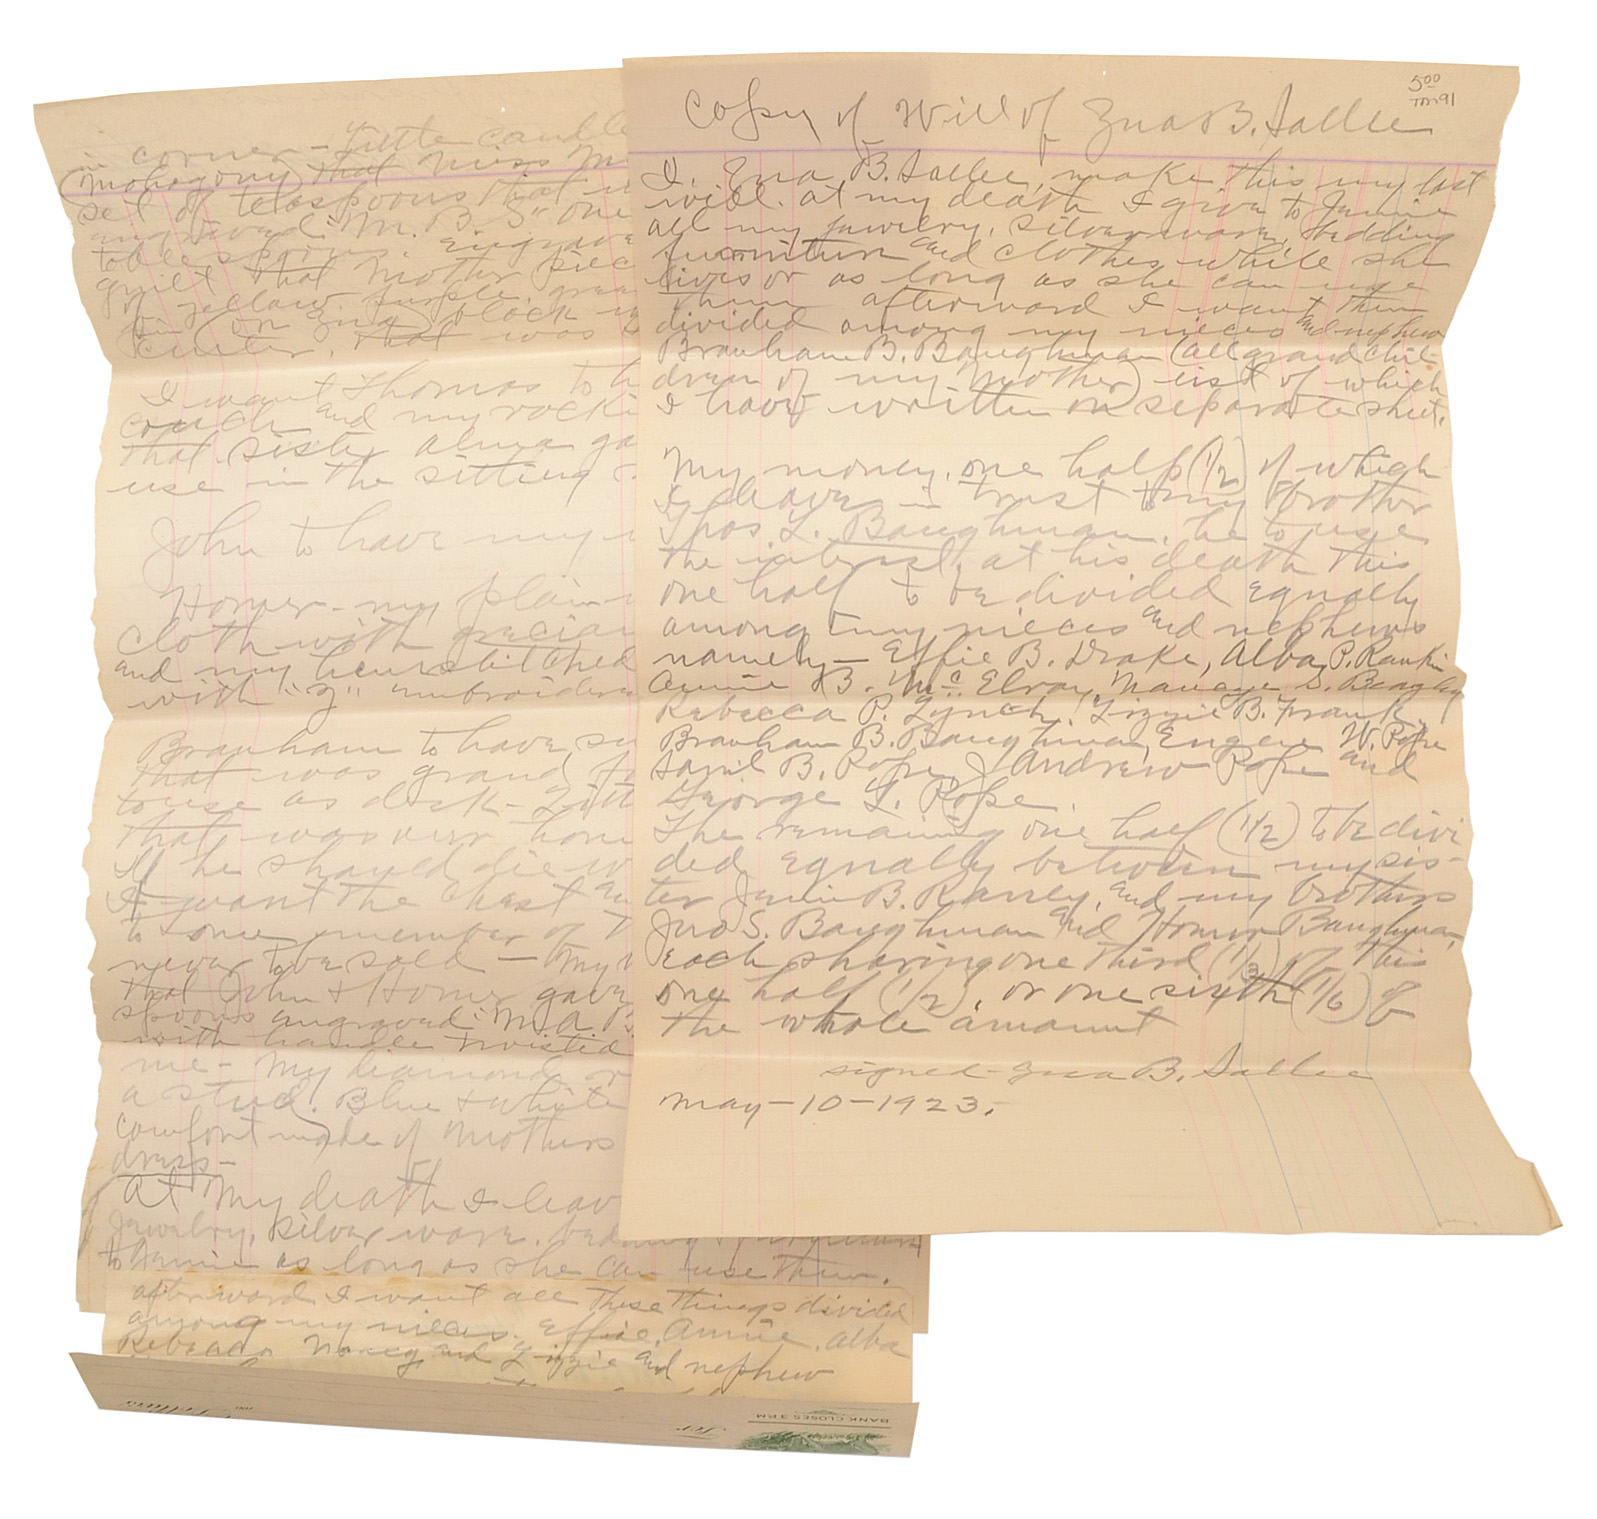 in corner – Little candle
(Mahogony) that Miss M
set of teaspoons that
engraved "M. B. S" one
tablespoons. Engrave
quilt that Mother piec
of yellow, purple, gree
silk (on Zina) block
center, that was
I want Thomas to h
couch and my rocki
that sister Alma ga
use in the sitting
John to have my
Homer – my plain
cloth with grecian
and my hemstitched
with "Z" embroider
Branham to have
that was grand fa
to use as desk – Litt
that was our hom
If he should die w
I want the chest an
to some member of
never to be sold – my
that John + Homer gave
spoons engraved M. A. B
with handle twisted
me – My diamond or
a stud. Blue + white
comfort made of Mothers
dress –
At my death I leav
Jewelry, silver ware, bedding & furniture
to Jennie as long as she can use them.
afterward I want all these things divided
among my nieces. Effie, Annie, Alba
Rebecca Nancy and Lizzie and nephew
BANK CLOSES 3 P.M.
For
Dollars
5.00
TM91
Copy of Will of Zua B. Sallee
I, Zua B. Sallee, make this my last
will. at my death I give to Jennie
all my jewelry, silverware, bedding
furniture and clothes while she
lives or as long as she can use
them afterward I want them
divided among my nieces and nephew
Branham B. Baughman (all grand chil-
dren of my Mother) list of which
I have written on separate sheet.
My money, one half (1/2) of which
I leave in trust to my brother
Thos L. Baughman, he to use
the interest, at his death this
one half to be divided equally
among my nieces and nephews
namely – Effie B. Drake, Alba P. Rankin
Annie B. McElroy, Nancye S. Beagley
Rebecca P. Lynch, Lizzie B. Frank,
Branham B. Baughman, Eugene W. Pope
Samil B. Pope, J Andrew Pope and
George L. Pope.
The remaining one half (1/2) to be divi
ded equally between my sis-
ter Jennie B. Raney, and my brothers
Jno S. Baughman and Homer Baughman,
each sharing one third (1/3) of this
one half (1/2), or one sixth (1/6) of
the whole amount
signed – Zua B. Sallee
May – 10 – 1923.